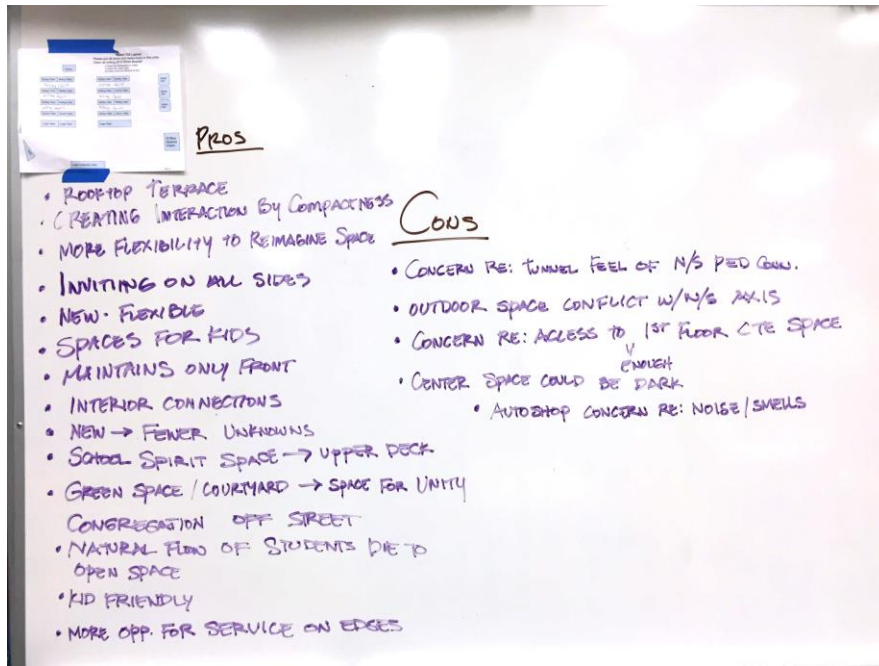 PROS
• ROOFTOP TERRACE
• CREATING INTERACTION BY COMPACTNESS
• MORE FLEXIBILITY TO REIMAGINE SPACE
• INVITING ON ALL SIDES
• NEW · FLEXIBLE
• SPACES FOR KIDS
• MAINTAINS ONLY FRONT
• INTERIOR CONNECTIONS
• NEW → FEWER UNKNOWNS
• SCHOOL SPIRIT SPACE → UPPER DECK
• GREEN SPACE / COURTYARD → SPACE FOR UNITY
CONGREGATION OFF STREET
• NATURAL FLOW OF STUDENTS DUE TO
OPEN SPACE
• KID FRIENDLY
• MORE OPP. FOR SERVICE ON EDGES
CONS
• CONCERN RE: TUNNEL FEEL OF N/S PED CONN.
• OUTDOOR SPACE CONFLICT W/N/S AXIS
• CONCERN RE: ACCESS TO 1ST FLOOR CTE SPACE
ENOUGH
• CENTER SPACE COULD BE DARK
• AUTOSHOP CONCERN RE: NOISE/SMELLS